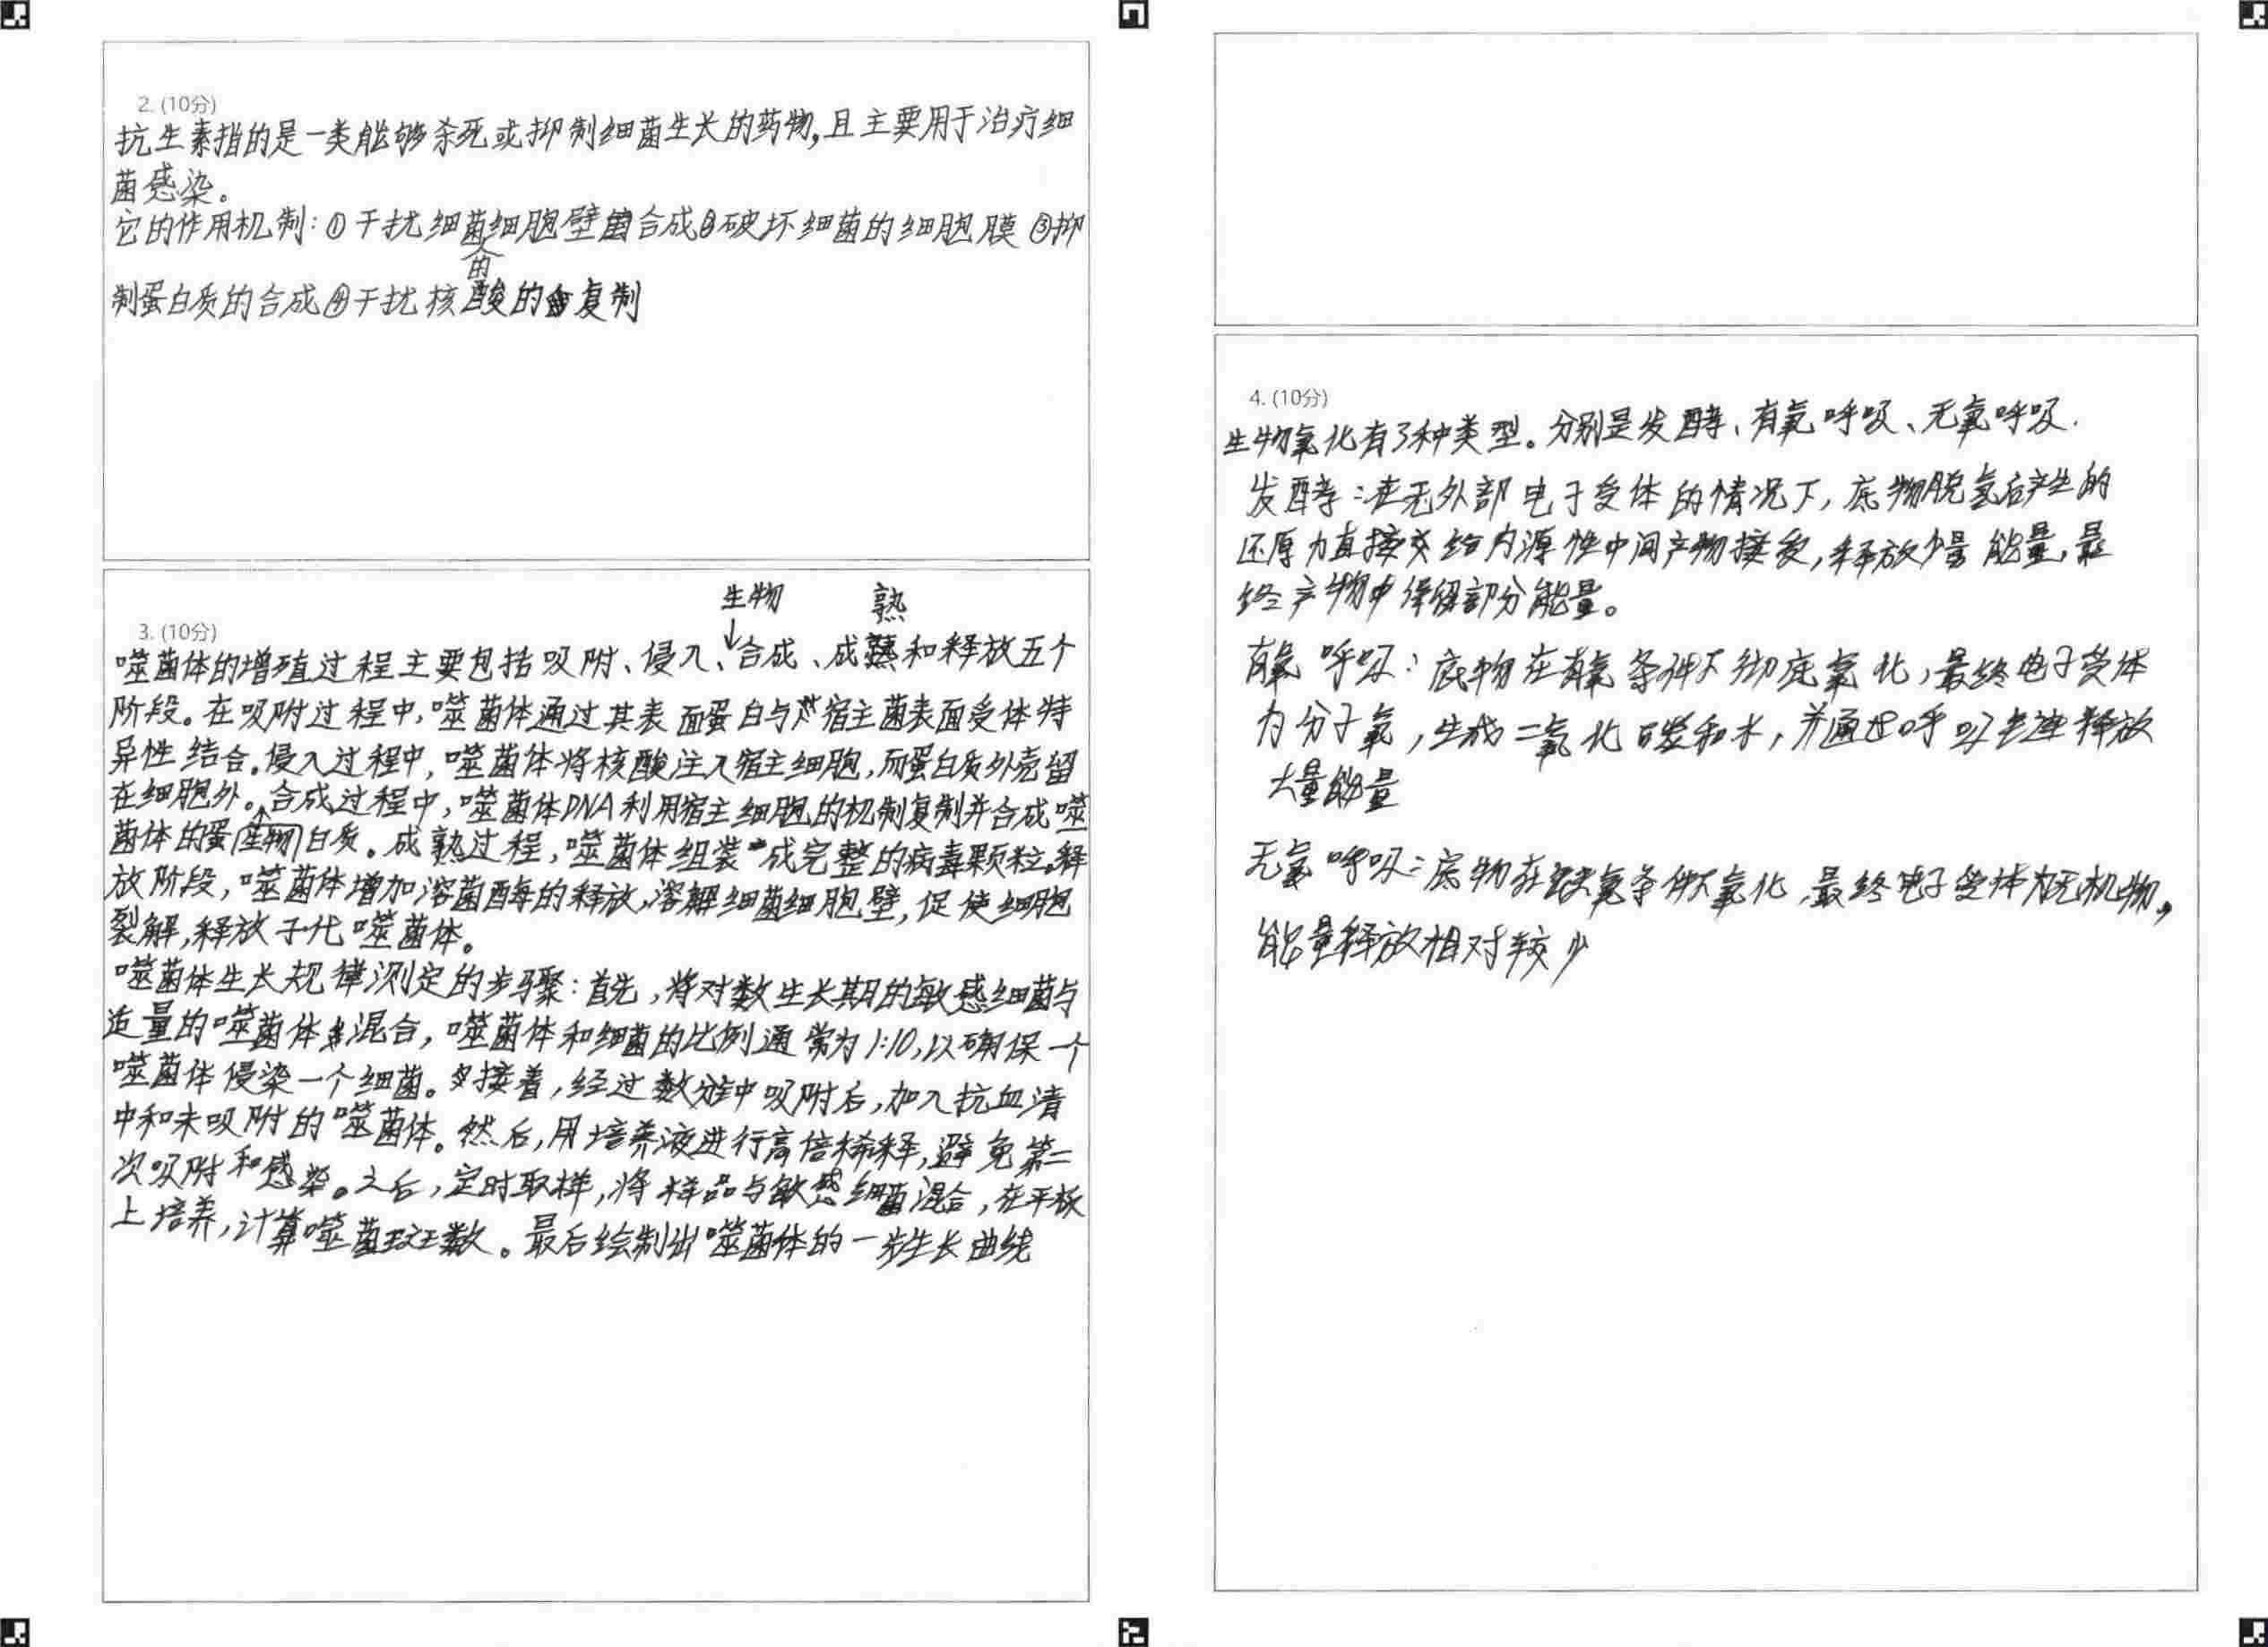 2. (10分)
抗生素指的是一类能够杀死或抑制细菌生长的药物,且主要用于治疗细
菌感染。
它的作用机制:①干扰细菌细胞壁合成②破坏细菌的细胞膜③抑
的
制蛋白质的合成④干扰核酸的复制
生物 熟
↓
3. (10分)
噬菌体的增殖过程主要包括吸附、侵入、合成、成熟和释放五个
阶段。在吸附过程中,噬菌体通过其表面蛋白与宿主菌表面受体特
异性结合。侵入过程中,噬菌体将核酸注入宿主细胞,而蛋白质外壳留
在细胞外。合成过程中,噬菌体DNA利用宿主细胞的机制复制并合成噬
菌体的蛋生物白质。成熟过程,噬菌体组装成完整的病毒颗粒。释
放阶段,噬菌体增加溶菌酶的释放,溶解细菌细胞壁,促使细胞
裂解,释放子代噬菌体。
噬菌体生长规律测定的步骤:首先,将对数生长期的敏感细菌与
适量的噬菌体混合,噬菌体和细菌的比例通常为1:10,以确保一个
噬菌体侵染一个细菌。接着,经过数分钟吸附后,加入抗血清
中和未吸附的噬菌体。然后,用培养液进行高倍稀释,避免第二
次吸附和感染。之后,定时取样,将样品与敏感细菌混合,在平板
上培养,计算噬菌斑数。最后绘制出噬菌体的一步生长曲线
4. (10分)
生物氧化有3种类型。分别是发酵、有氧呼吸、无氧呼吸.
发酵:在无外部电子受体的情况下,底物脱氢后产生的
还原力直接交给内源性中间产物接受,释放少量能量,最
终产物中保留部分能量。
有氧呼吸:底物在有氧条件下彻底氧化,最终电子受体
为分子氧,生成二氧化碳和水,并通过呼吸链释放
大量能量
无氧呼吸:底物在缺氧条件下氧化,最终电子受体为无机物,
能量释放相对较少